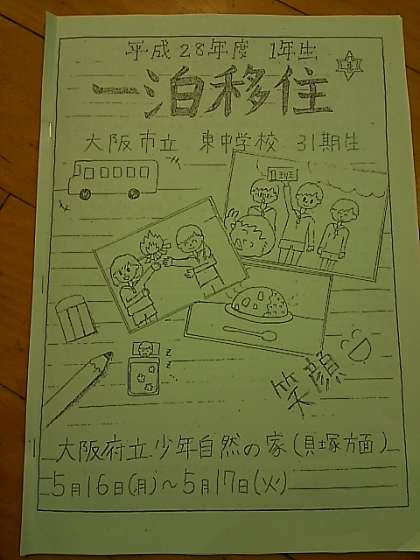 平成28年度 1年生
一泊移住
大阪市立 東中学校 31期生
笑顔
大阪府立少年自然の家(貝塚方面)
5月16日(月)～5月17日(火)